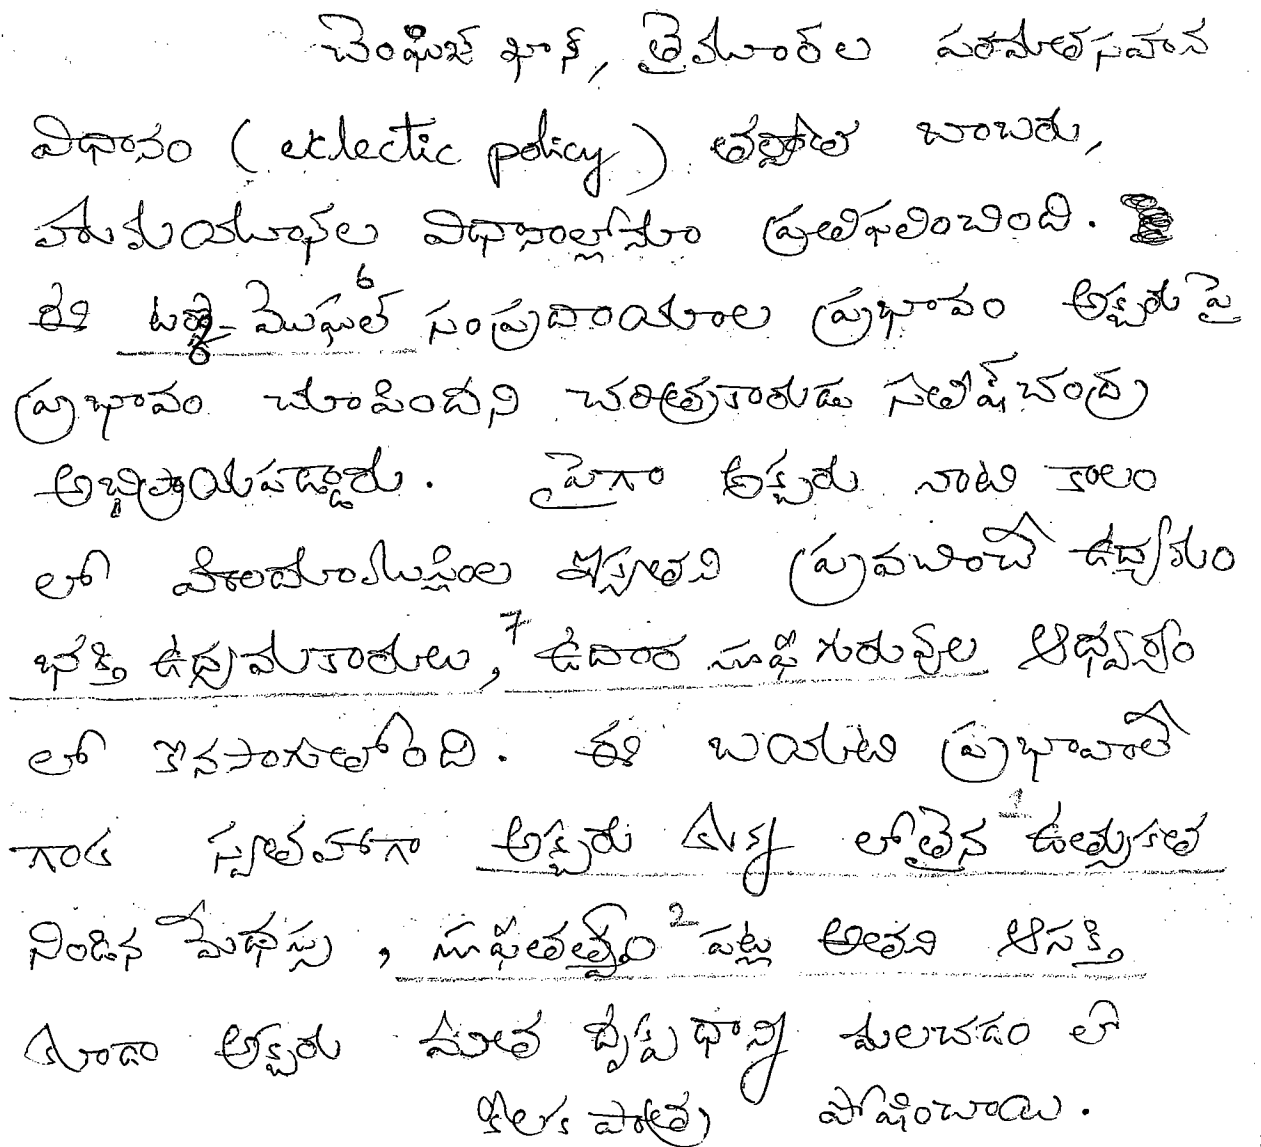 చెంఘిజ్ ఖాన్, తైమూర్‌ల పరమతసహన
విధానం (eclectic policy) తర్వాత బాబరు,
హుమయూన్‌ల విధానాల్లోనూ ప్రతిఫలించింది.
ఈ టర్కో-మొఘల్ 6 సంప్రదాయాల ప్రభావం అక్బరు పై
ప్రభావం చూపిందని చరిత్రకారుడు సతీష్ చంద్ర
అభిప్రాయపడ్డారు. పైగా అక్బరు నాటి కాలం
లో హిందూముస్లింల ఐక్యతని ప్రవచించే ఉద్యమం
భక్తి ఉద్యమకారులు, 7 ఉదార సూఫీ గురువుల ఆధ్వర్యం
లో కొనసాగుతోంది. ఈ బయటి ప్రభావాలే
గాక స్వతహాగా అక్బరు యొక్క లోతైన 1 ఉత్సుకత
నిండిన మేధస్సు, సూఫీతత్వం 2 పట్ల అతని ఆసక్తి
కూడా అక్బరు మత దృక్పధాన్ని మలచడం లో
కీలక పాత్ర పోషించాయి.